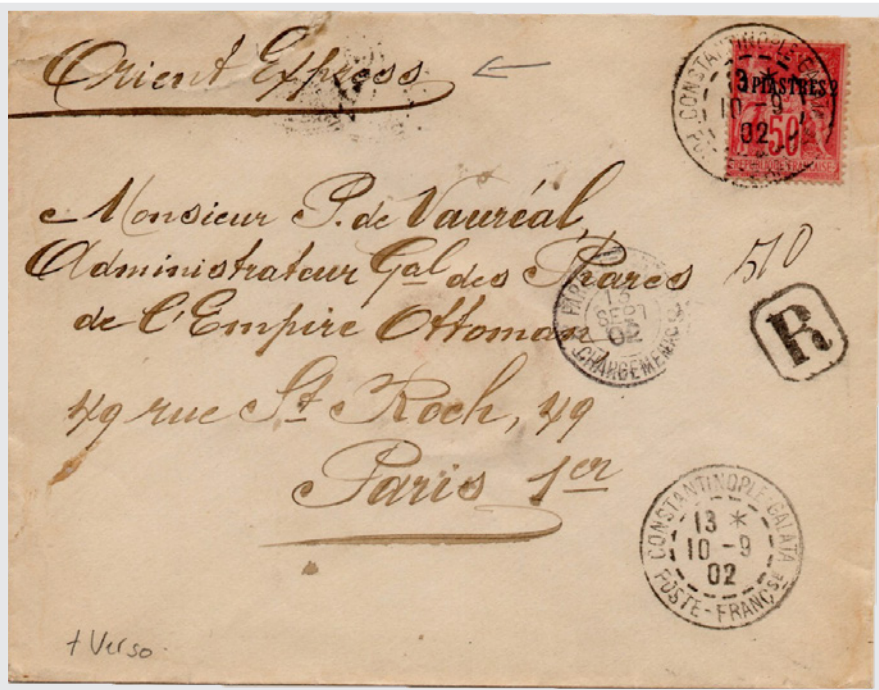 Orient Express
CONSTANTINOPLE-GALATA
13 *
10-9
02
2 PIASTRES 2
50
REPUBLIQUE FRANÇAISE
Monsieur P. de Vauréal,
Administrateur Gal des Phares
de l'Empire Ottoman
510
PARIS
13
SEPT
02
CHARGEMENTS
R
49 rue St Roch, 49
Paris 1er
CONSTANTINOPLE-GALATA
13 *
10-9
02
POSTE-FRANÇSE
+ Verso